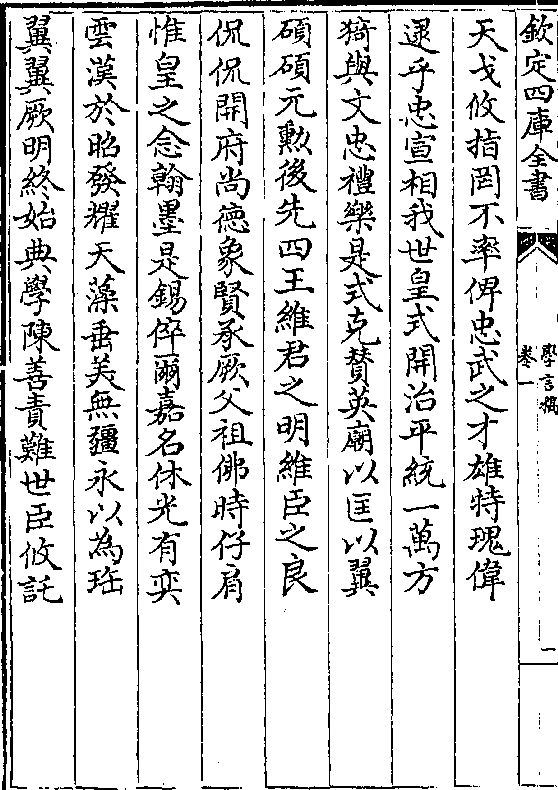 欽定四庫全書
學言稿
卷一
一
天戈攸指罔不率俾忠武之才雄特瑰偉
逮乎忠宣相我世皇式開治平統一萬方
猗與文忠禮樂是式克賛英廟以匡以翼
碩碩元勲後先四王維君之明維臣之良
侃侃開府尚德象賢承厥父祖佛時仔肩
惟皇之念翰墨是錫倬爾嘉名休光有奕
雲漢於昭發耀天藻垂美無疆永以為珤
翼翼厥明終始典學陳善責難世臣攸託